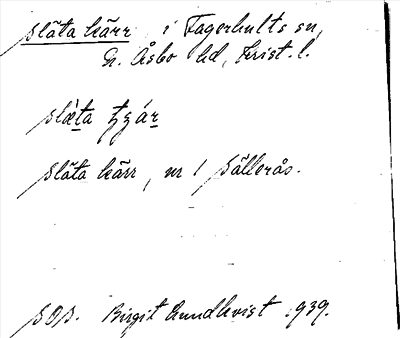 släta kärr i Fagerhults sn,
N. Åsbo hd, Krist. l.
släta kärr, nr 1 Sällerås.
SOS. Birgit Lundkvist 1939.